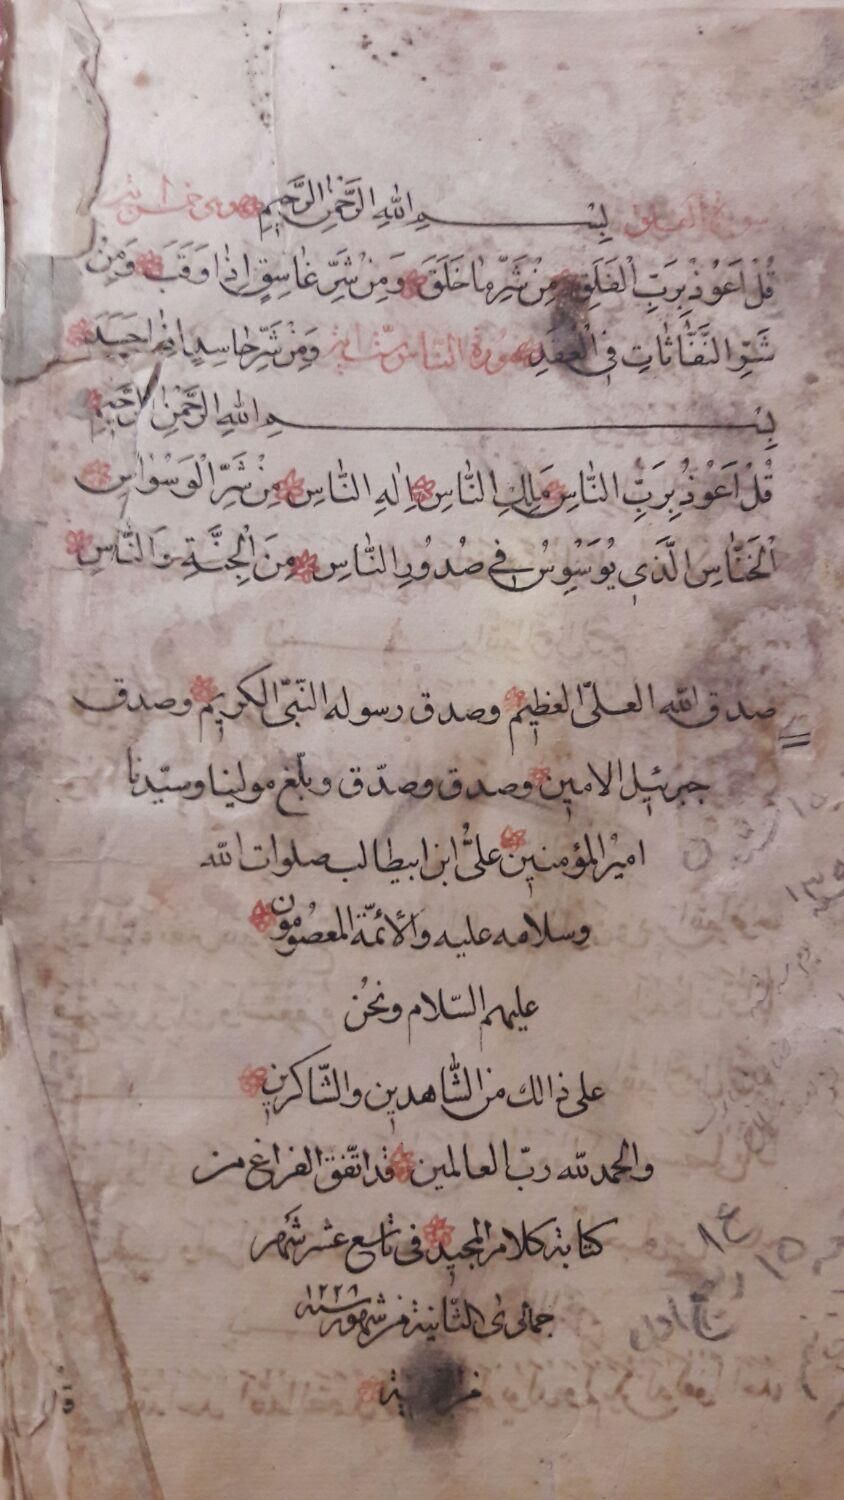 سورة الفلق بِسْمِ اللهِ الرَّحْمٰنِ الرَّحِيمِ وهى خمس
قُلْ اَعُوذُ بِرَبِّ الْفَلَقِ مِنْ شَرِّ مَا خَلَقَ وَمِنْ شَرِّ غَاسِقٍ اِذَا وَقَبَ وَمِنْ
شَرِّ النَّفَّاثَاتِ فِى الْعُقَدِ وَمِنْ شَرِّ حَاسِدٍ اِذَا حَسَدَ سورة الناس
بِسْمِ اللهِ الرَّحْمٰنِ الرَّحِيمِ
قُلْ اَعُوذُ بِرَبِّ النَّاسِ مَلِكِ النَّاسِ اِلٰهِ النَّاسِ مِنْ شَرِّ الْوَسْوَاسِ
الْخَنَّاسِ الَّذِى يُوَسْوِسُ فِى صُدُورِ النَّاسِ مِنَ الْجِنَّةِ وَالنَّاسِ
صدق الله العلىّ العظيم وصدق رسوله النّبىّ الكريم وصدق
جبرئيل الامين وصدق وصدّق وبلّغ مولينا وسيّدنا
امير المؤمنين علىُّ ابن ابيطالب صلوات الله
وسلامه عليه والأئمّة المعصومون
عليهم السّلام ونحن
على ذالك من الشّاهدين والشّاكرين
والحمد لله ربّ العالمين قد اتّفق الفراغ من
كتابة كلام المجيد فى تاسع عشر شهر
جمادى الثّانية من شهور سنه